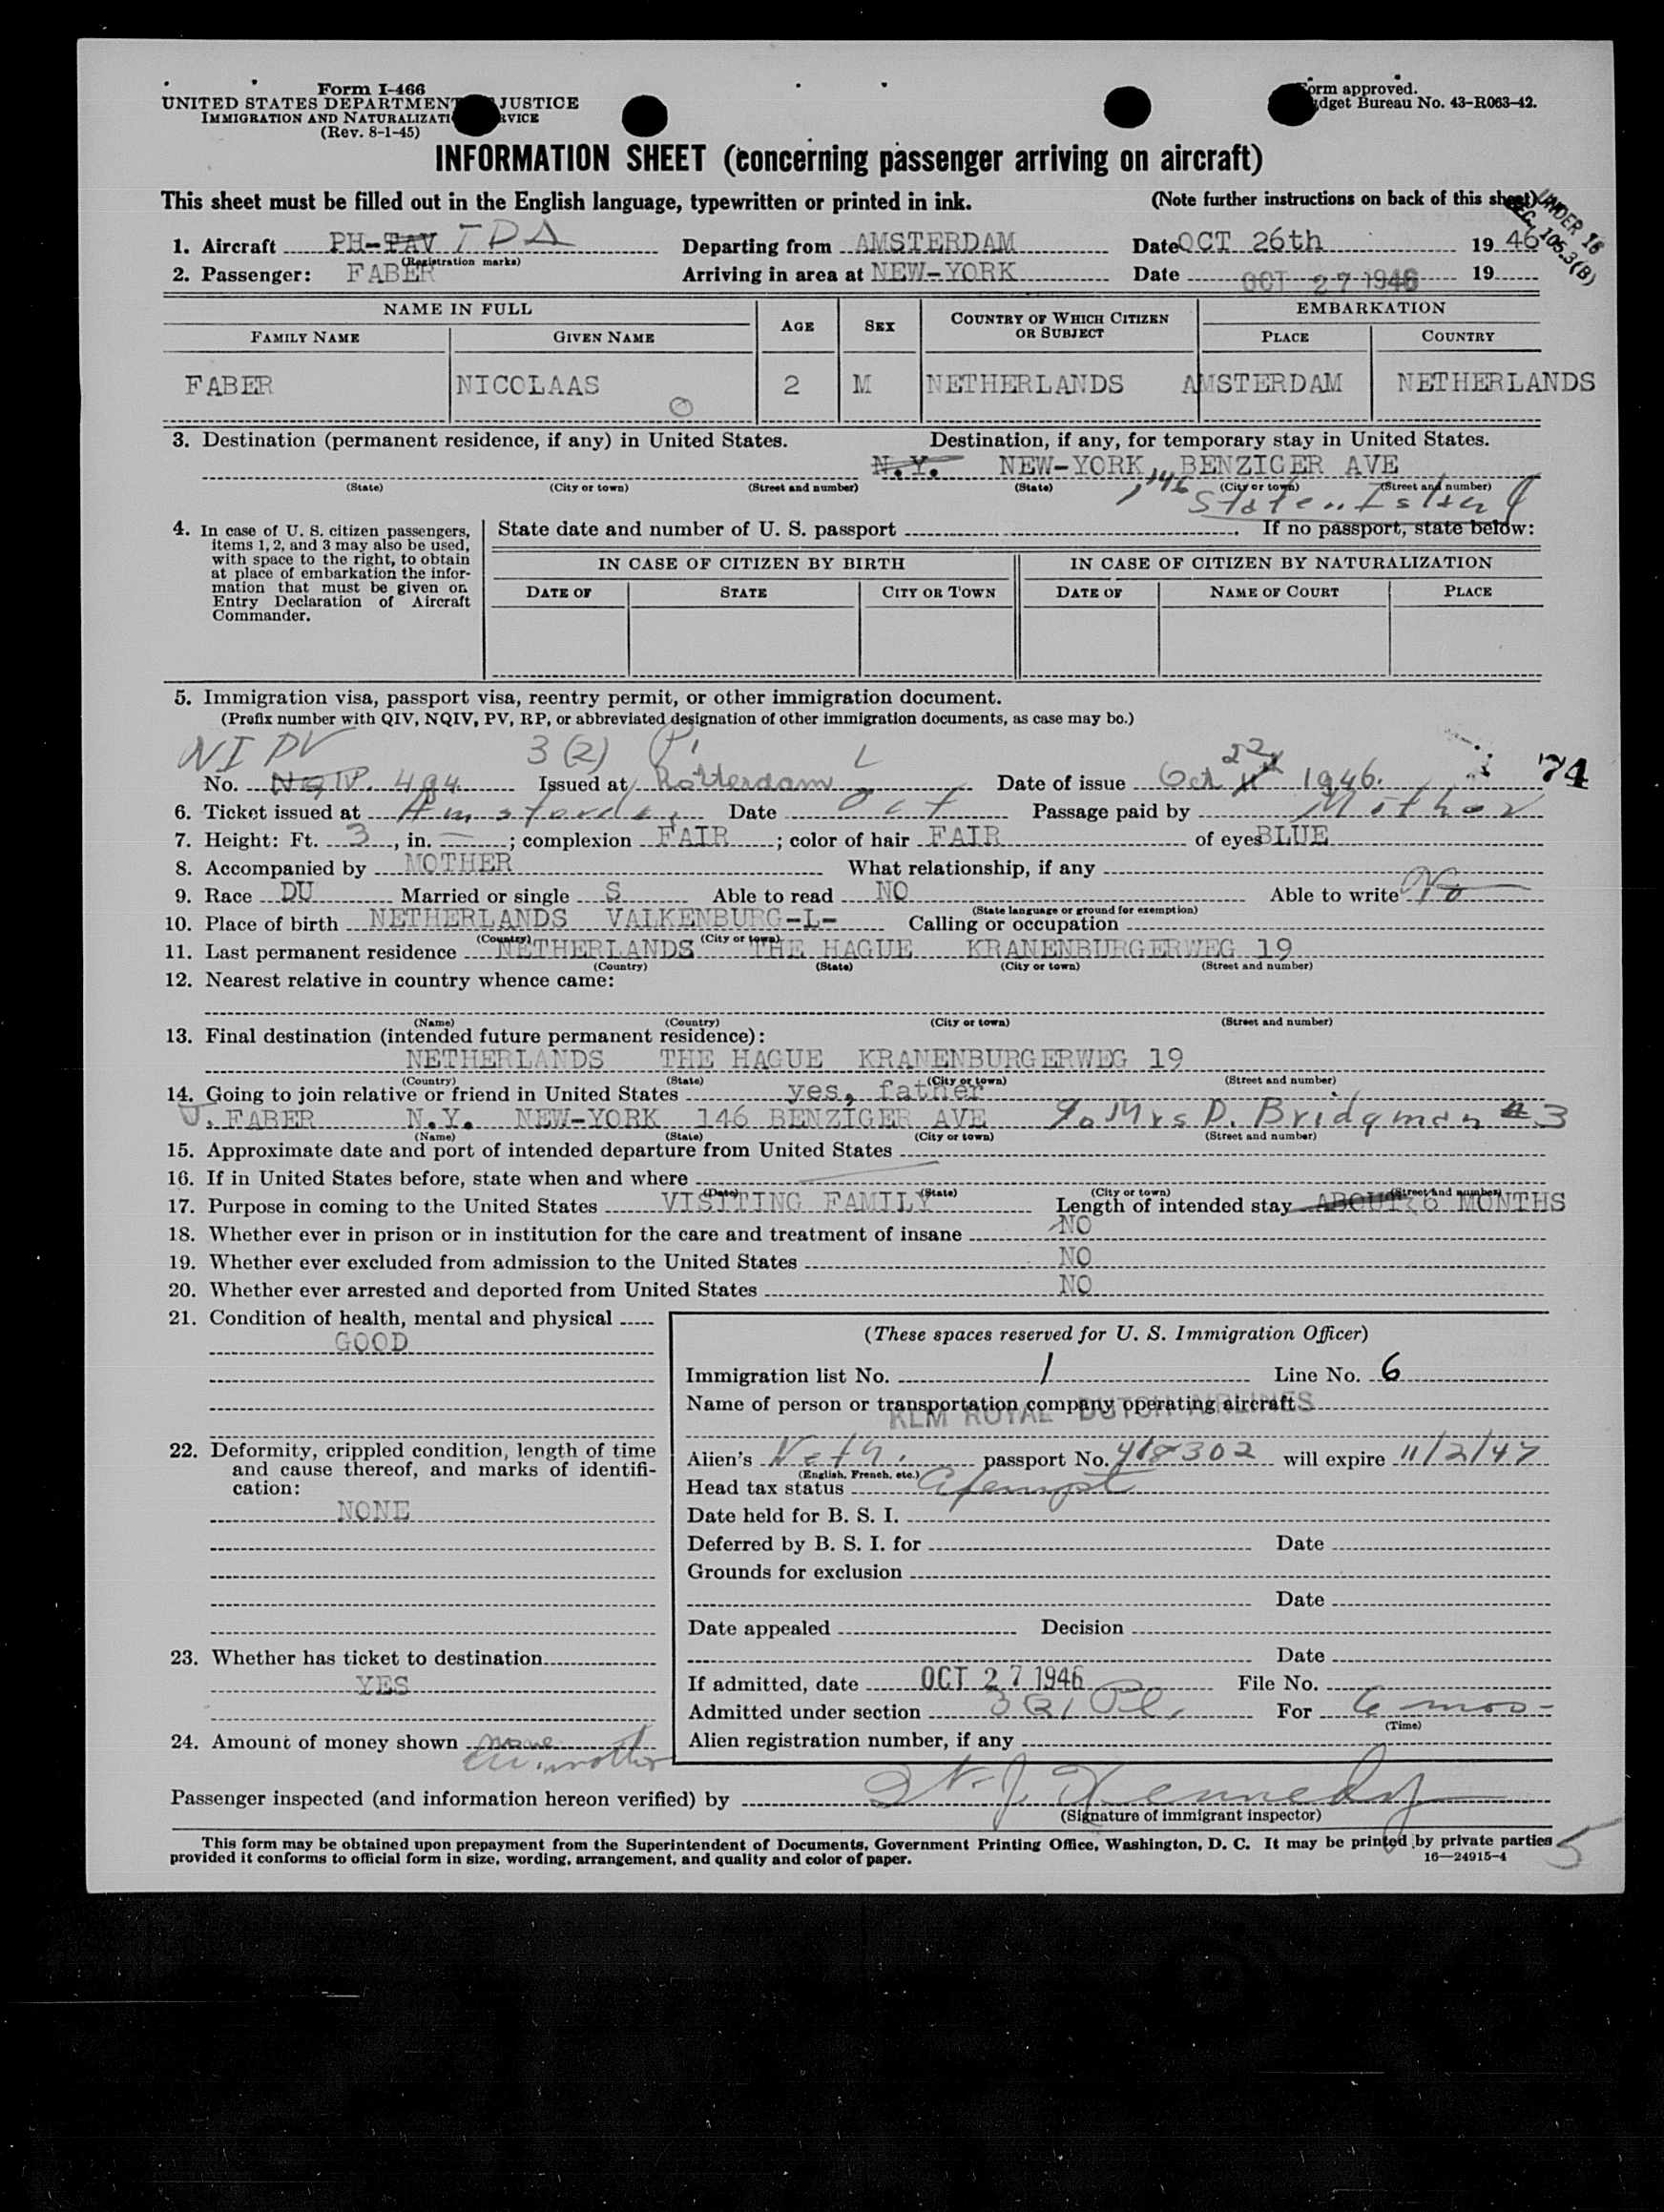 Form I-466
UNITED STATES DEPARTMENT JUSTICE
IMMIGRATION AND NATURALIZATI RVICE
(Rev. 8-1-45)
orm approved.
dget Bureau No. 43-R063-42.
INFORMATION SHEET (concerning passenger arriving on aircraft)
This sheet must be filled out in the English language, typewritten or printed in ink. (Note further instructions on back of this sheet)
UNDER 16
SEC. 105.3(B)
1. Aircraft PH-TAV TDA Departing from AMSTERDAM Date OCT 26th 1946
(Registration marks)
2. Passenger: FABER Arriving in area at NEW-YORK Date OCT 27 1946 19
NAME IN FULL AGE SEX COUNTRY OF WHICH CITIZEN OR SUBJECT EMBARKATION
FAMILY NAME GIVEN NAME PLACE COUNTRY
FABER NICOLAAS 2 M NETHERLANDS AMSTERDAM NETHERLANDS
3. Destination (permanent residence, if any) in United States. Destination, if any, for temporary stay in United States.
N.Y. NEW-YORK, BENZIGER AVE
(State) (City or town) (Street and number) (State) (City or town) (Street and number)
146 Staten Island
4. In case of U. S. citizen passengers, items 1, 2, and 3 may also be used, with space to the right, to obtain at place of embarkation the information that must be given on Entry Declaration of Aircraft Commander.
State date and number of U. S. passport If no passport, state below:
IN CASE OF CITIZEN BY BIRTH IN CASE OF CITIZEN BY NATURALIZATION
DATE OF STATE CITY OR TOWN DATE OF NAME OF COURT PLACE
5. Immigration visa, passport visa, reentry permit, or other immigration document.
(Prefix number with QIV, NQIV, PV, RP, or abbreviated designation of other immigration documents, as case may be.)
NI PV 3 (2) 22
No. NQIV. 494 Issued at Rotterdam Date of issue Oct 1946. 74
6. Ticket issued at Amsterdam Date Oct Passage paid by Mother
7. Height: Ft. 3, in. —; complexion FAIR; color of hair FAIR of eyes BLUE
8. Accompanied by MOTHER What relationship, if any
9. Race DU Married or single S Able to read NO Able to write No
(State language or ground for exemption)
10. Place of birth NETHERLANDS VALKENBURG-L- Calling or occupation
(Country) (City or town)
11. Last permanent residence NETHERLANDS THE HAGUE KRANENBURGERWEG 19
(Country) (State) (City or town) (Street and number)
12. Nearest relative in country whence came:
(Name) (Country) (City or town) (Street and number)
13. Final destination (intended future permanent residence):
NETHERLANDS THE HAGUE KRANENBURGERWEG 19
(Country) (State) (City or town) (Street and number)
14. Going to join relative or friend in United States yes, father
J. FABER N.Y. NEW-YORK 146 BENZIGER AVE % Mrs D. Bridgman #3
(Name) (State) (City or town) (Street and number)
15. Approximate date and port of intended departure from United States
16. If in United States before, state when and where
(Date) (State) (City or town) (Street and number)
17. Purpose in coming to the United States VISITING FAMILY Length of intended stay ABOUT 6 MONTHS
18. Whether ever in prison or in institution for the care and treatment of insane NO
19. Whether ever excluded from admission to the United States NO
20. Whether ever arrested and deported from United States NO
21. Condition of health, mental and physical
GOOD
22. Deformity, crippled condition, length of time and cause thereof, and marks of identification:
NONE
23. Whether has ticket to destination
YES
24. Amount of money shown none
mother
(These spaces reserved for U. S. Immigration Officer)
Immigration list No. 1 Line No. 6
Name of person or transportation company operating aircraft
KLM ROYAL DUTCH AIRLINES
Alien's Neth. passport No. 418302 will expire 11/2/47
(English, French, etc.)
Head tax status Exempt
Date held for B. S. I.
Deferred by B. S. I. for Date
Grounds for exclusion
Date
Date appealed Decision
Date
If admitted, date OCT 27 1946 File No.
Admitted under section 3(2) For 6 mos
(Time)
Alien registration number, if any
Passenger inspected (and information hereon verified) by Kennedy
(Signature of immigrant inspector)
This form may be obtained upon prepayment from the Superintendent of Documents, Government Printing Office, Washington, D. C. It may be printed by private parties
provided it conforms to official form in size, wording, arrangement, and quality and color of paper. 16—24915-4
5